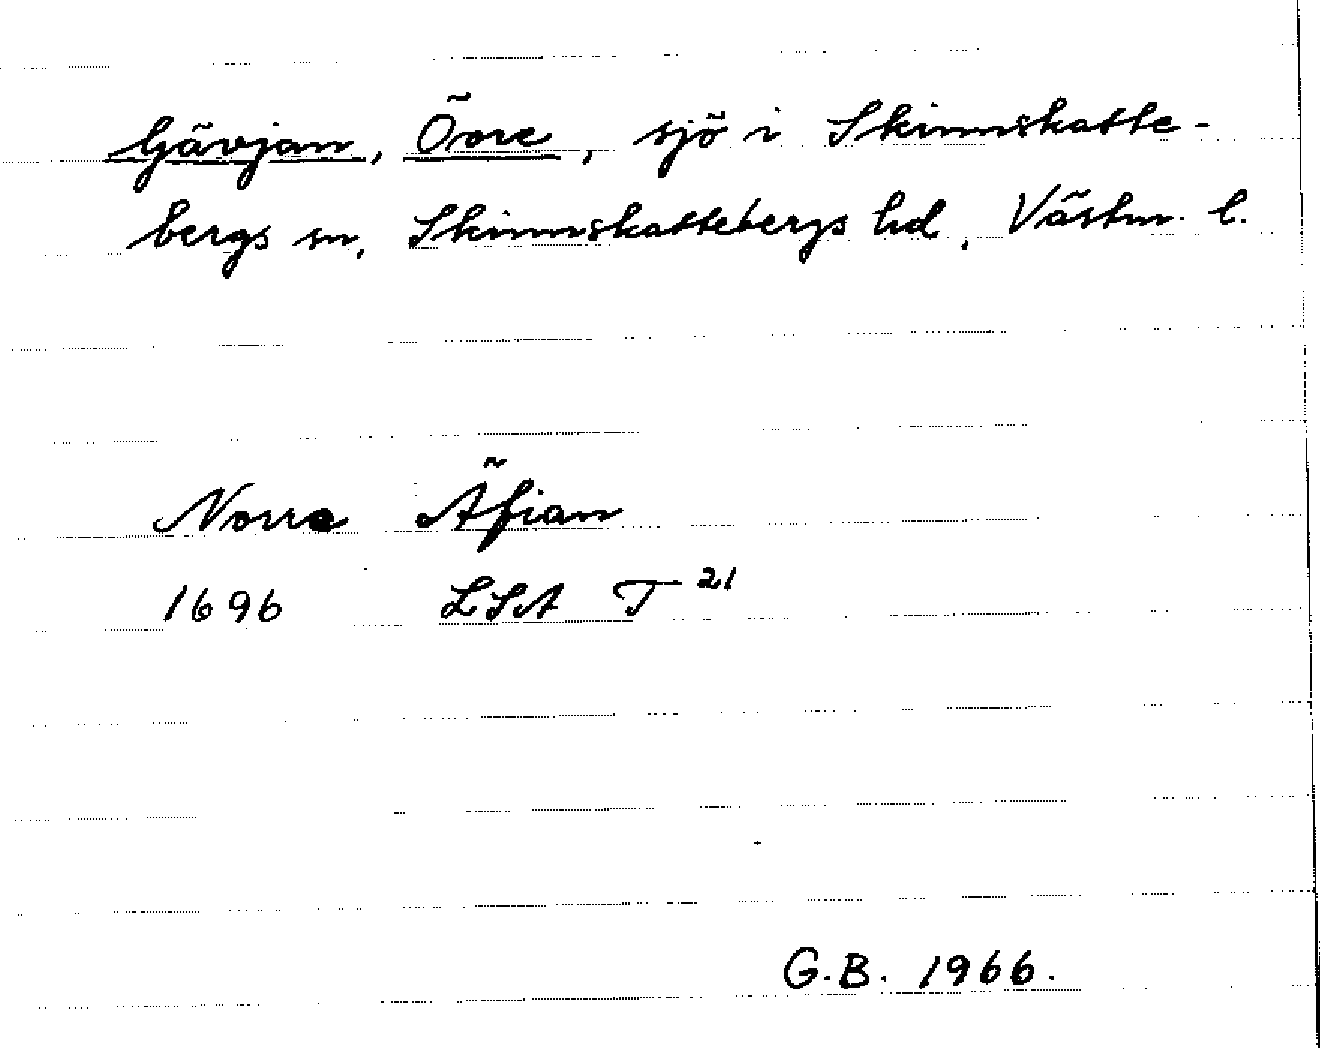 Gävjan, Övre, sjö i Skinnskatte-
bergs sn, Skinnskattebergs hd, Västm. l.
Norra Äfian
1696 LSA T 21
G.B. 1966.